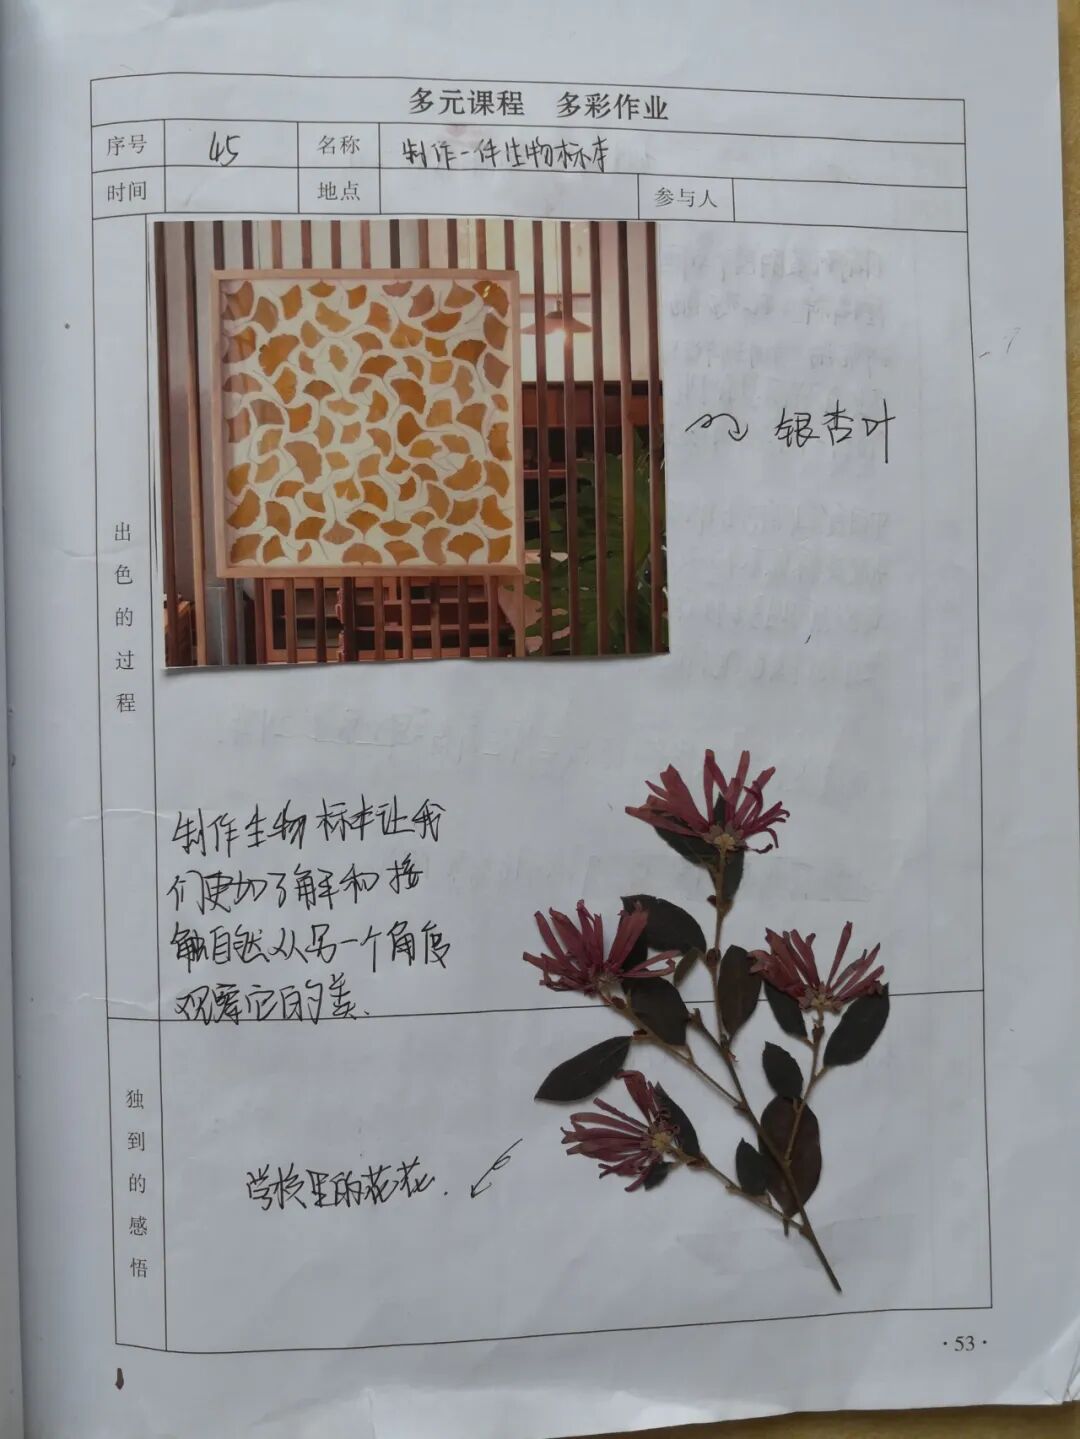 多元课程 多彩作业
序号 45 名称 制作一件生物标本
时间 地点 参与人
出色的过程
银杏叶
制作生物标本让我
们更加了解和接
触自然从另一个角度
观察它的美.
独到的感悟
学校里的花花.
·53·